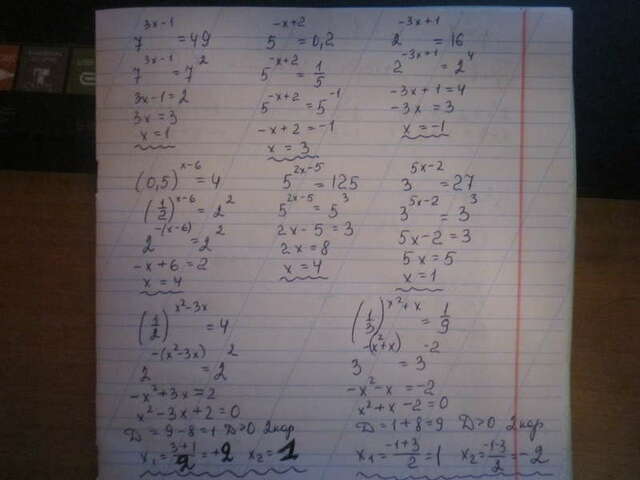 7^(3x-1) = 49
7^(3x-1) = 7^2
3x-1 = 2
3x = 3
x = 1
5^(-x+2) = 0,2
5^(-x+2) = 1/5
5^(-x+2) = 5^(-1)
-x+2 = -1
x = 3
2^(-3x+1) = 16
2^(-3x+1) = 2^4
-3x+1 = 4
-3x = 3
x = -1
(0,5)^(x-6) = 4
(1/2)^(x-6) = 2^2
2^(-(x-6)) = 2^2
-x+6 = 2
x = 4
5^(2x-5) = 125
5^(2x-5) = 5^3
2x-5 = 3
2x = 8
x = 4
3^(5x-2) = 27
3^(5x-2) = 3^3
5x-2 = 3
5x = 5
x = 1
(1/2)^(x^2-3x) = 4
2^(-(x^2-3x)) = 2^2
-x^2+3x = 2
x^2-3x+2 = 0
D = 9-8 = 1 D>0 2кор
x₁ = (3+1)/2 = +2 x₂ = 1
(1/3)^(x^2+x) = 1/9
3^(-(x^2+x)) = 3^(-2)
-x^2-x = -2
x^2+x-2 = 0
D = 1+8 = 9 D>0 2кор
x₁ = (-1+3)/2 = 1 x₂ = (-1-3)/2 = -2